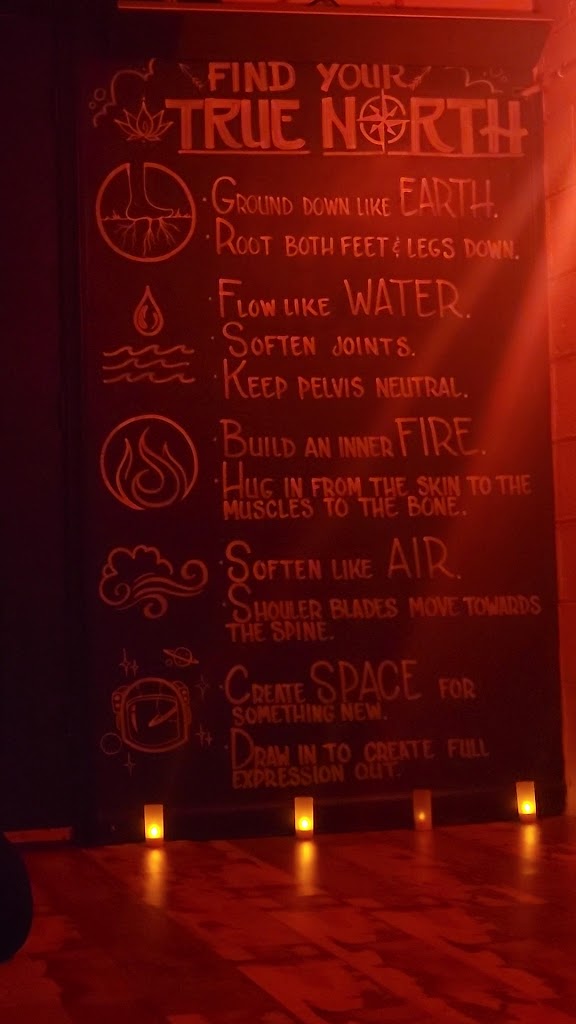 FIND YOUR
TRUE NORTH
• GROUND DOWN LIKE EARTH.
• ROOT BOTH FEET & LEGS DOWN.
• FLOW LIKE WATER.
• SOFTEN JOINTS.
• KEEP PELVIS NEUTRAL.
• BUILD AN INNER FIRE.
• HUG IN FROM THE SKIN TO THE
MUSCLES TO THE BONE.
• SOFTEN LIKE AIR.
• SHOULER BLADES MOVE TOWARDS
THE SPINE.
• CREATE SPACE FOR
SOMETHING NEW.
• DRAW IN TO CREATE FULL
EXPRESSION OUT.